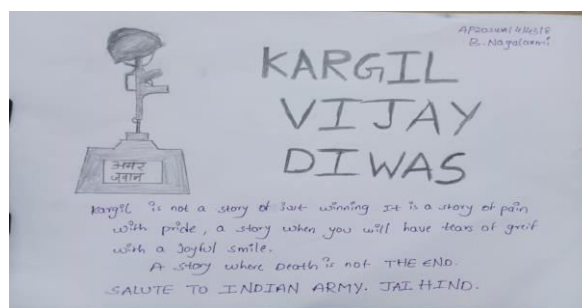 B. Nagalaxmi
KARGIL
VIJAY
DIWAS
अमर
जवान
Kargil is not a story of just winning It is a story of pain
with pride, a story when you will have tears of greif
with a Joyful smile.
A story where Death is not THE END.
SALUTE TO INDIAN ARMY. JAI HIND.